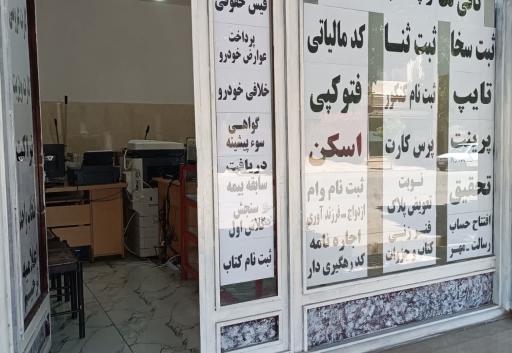 فیش حقوقی
پرداخت
عوارض خودرو
خلافی خودرو
گواهی
سوء پیشینه
دریافت
سابقه بیمه
سنجش
کلاس اول
ثبت نام کتاب
ثبت سخا
ثبت ثنا
کد مالیاتی
تایپ
ثبت نام کنکور
فتوکپی
پرینت
پرس کارت
اسکن
تحقیق
نوبت
تعویض پلاک
ثبت نام وام
ازدواج_فرزند آوری
افتتاح حساب
رسالت_مهر
فروش
کتاب و جزوات
اجاره نامه
کد رهگیری دار